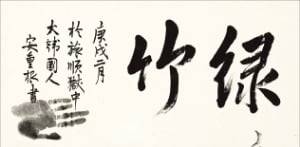 緑竹
庚戌二月
於旅順獄中
大韓國人
安重根書